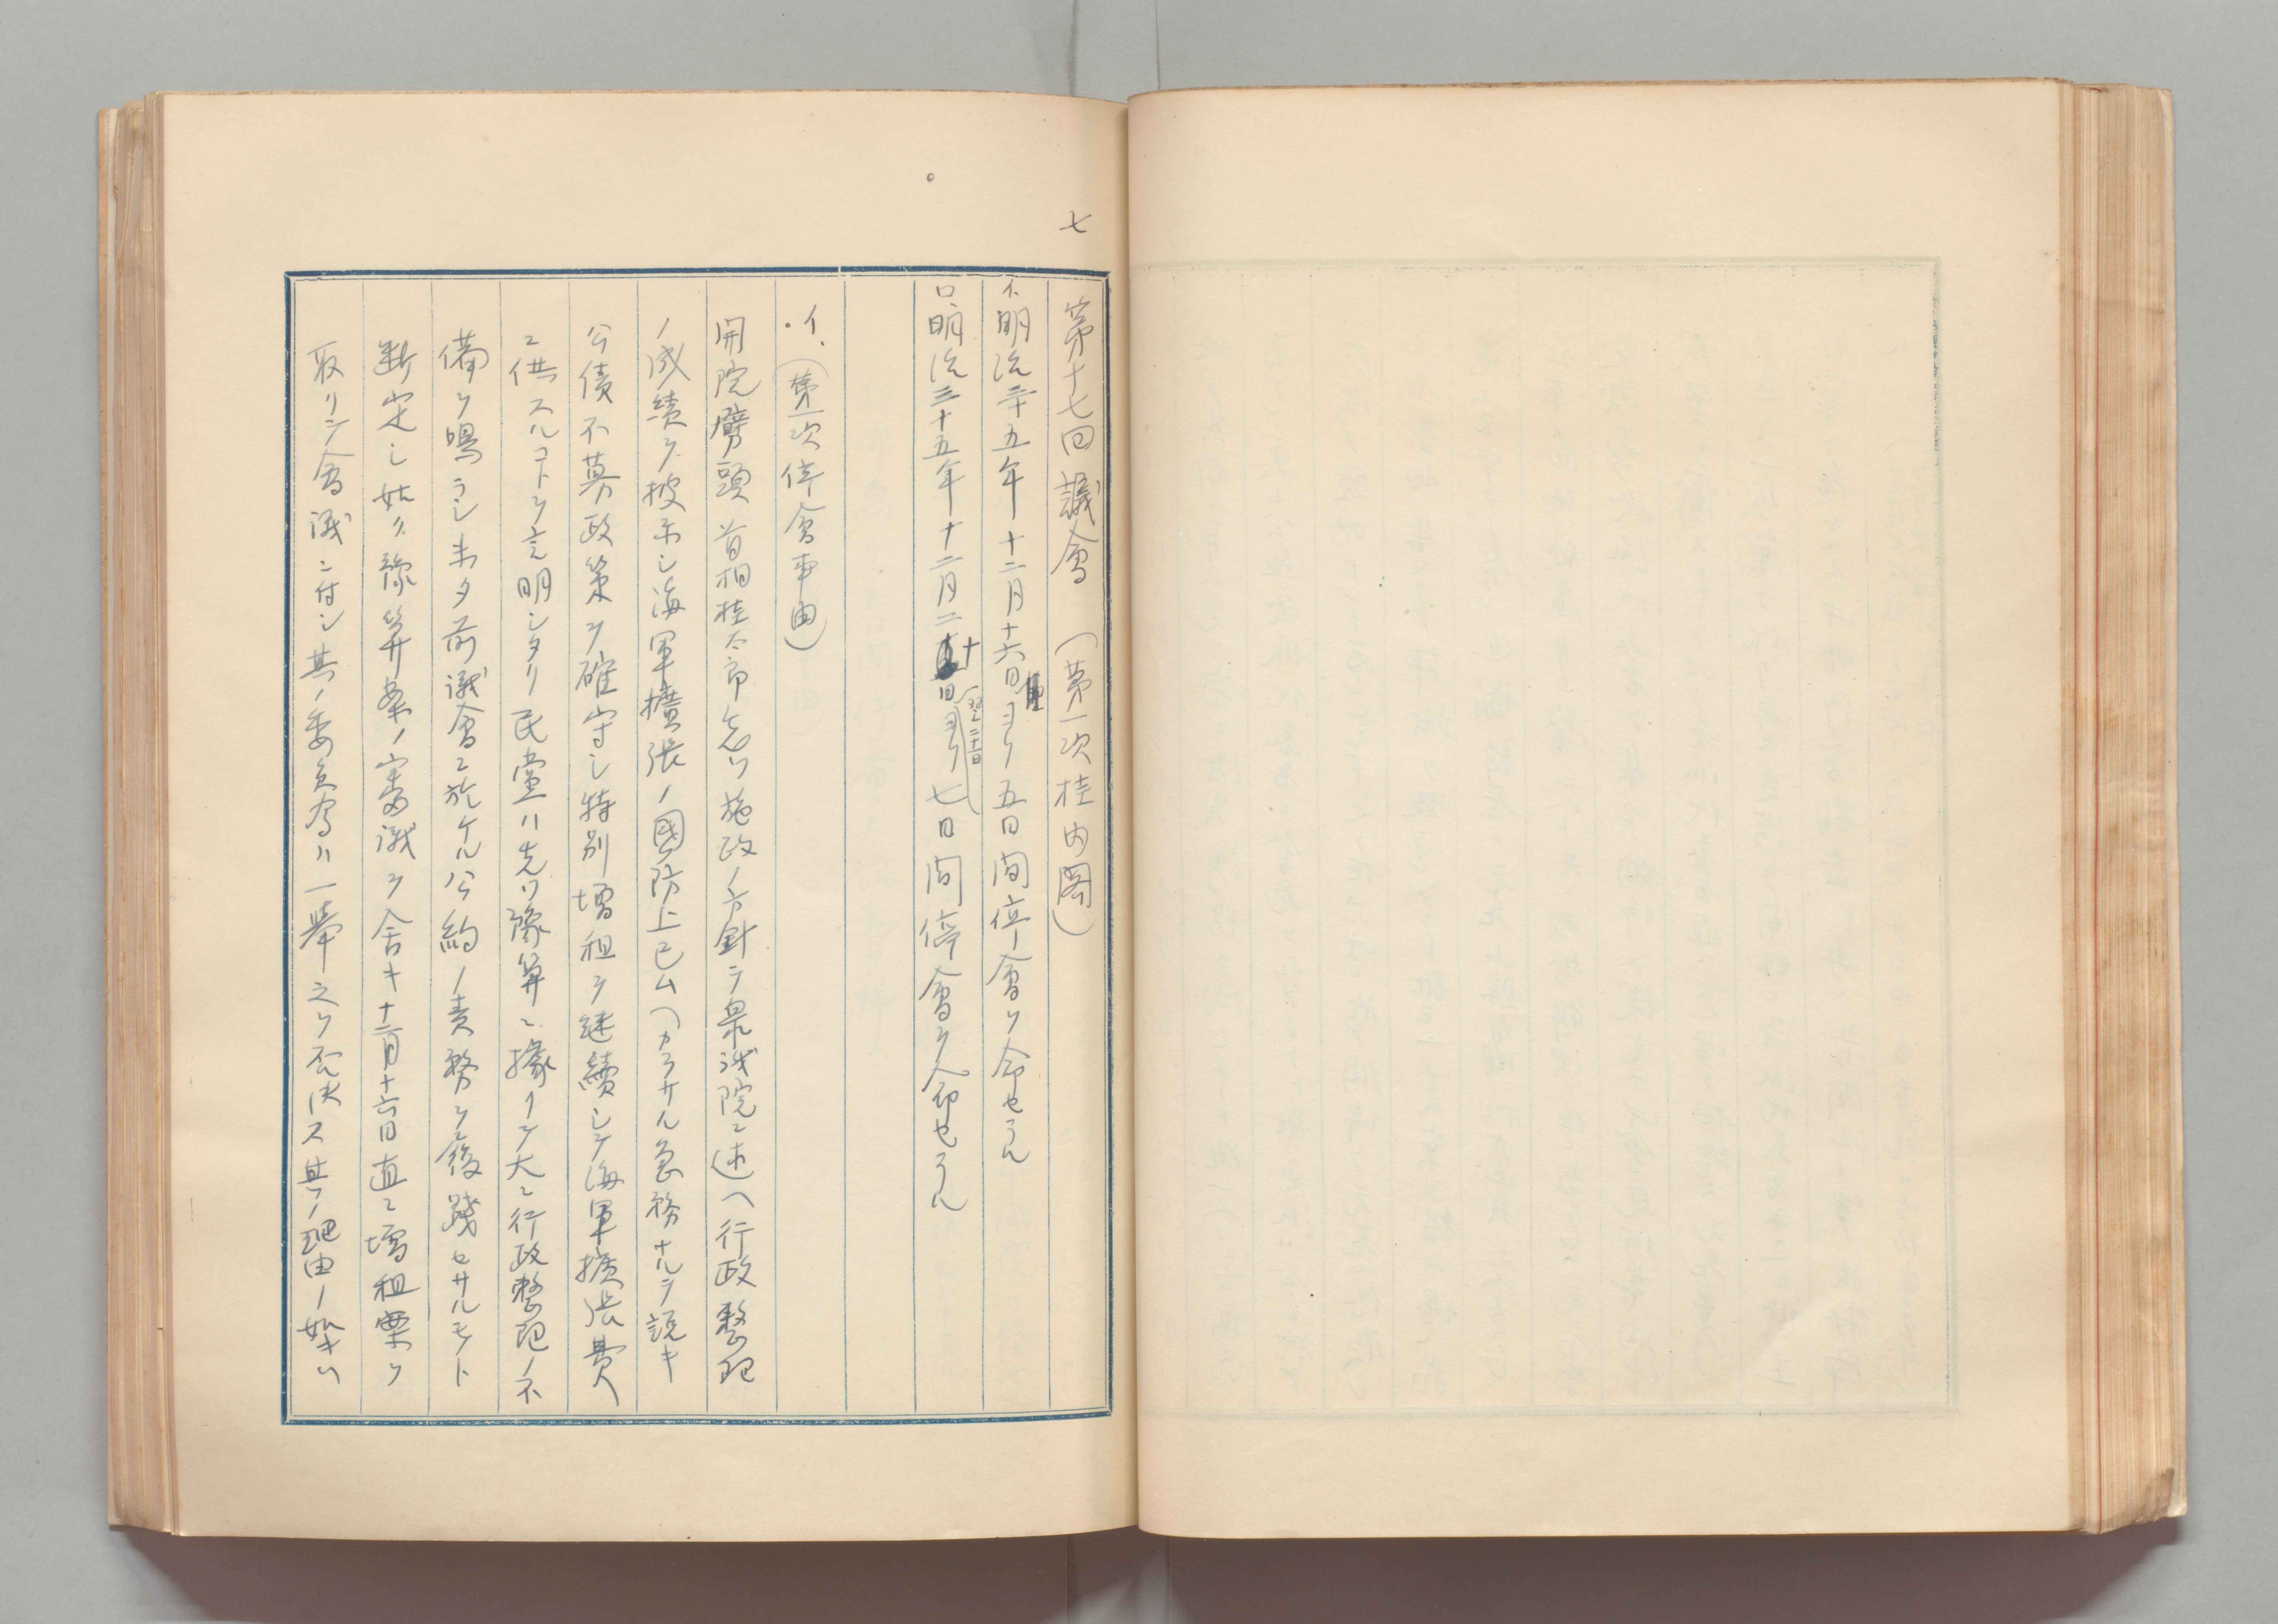 七
第十七回議會（第一次桂内閣）
イ明治三十五年十二月十六日ヨリ五日間停會ヲ命セラル
ロ明治三十五年十二月二十日（翌二十一日ヨリ）七日間停會ヲ命セラル
イ、（第一次停會事由）
開院劈頭首相桂太郎先ツ施政ノ方針ヲ衆議院ニ述ヘ行政整理
ノ成績ヲ披示シ海軍擴張ノ國防上已ムヘカラサル急務ナルヲ説キ
公債不募政策ヲ確守シ特別増租ヲ継續シテ海軍擴張費
ニ供スルコトヲ言明シタリ民黨ハ先ツ豫算ニ據リテ大ニ行政整理ノ不
備ヲ鳴ラシ未タ前議會ニ於ケル公約ノ責務ヲ履踐セサルモノト
断定シ姑ク豫算案ノ審議ヲ舍キ十二月十六日直ニ増租案ヲ
取リテ會議ニ付シ其ノ委員會ハ一擧之ヲ否決ス其ノ理由ノ如キハ